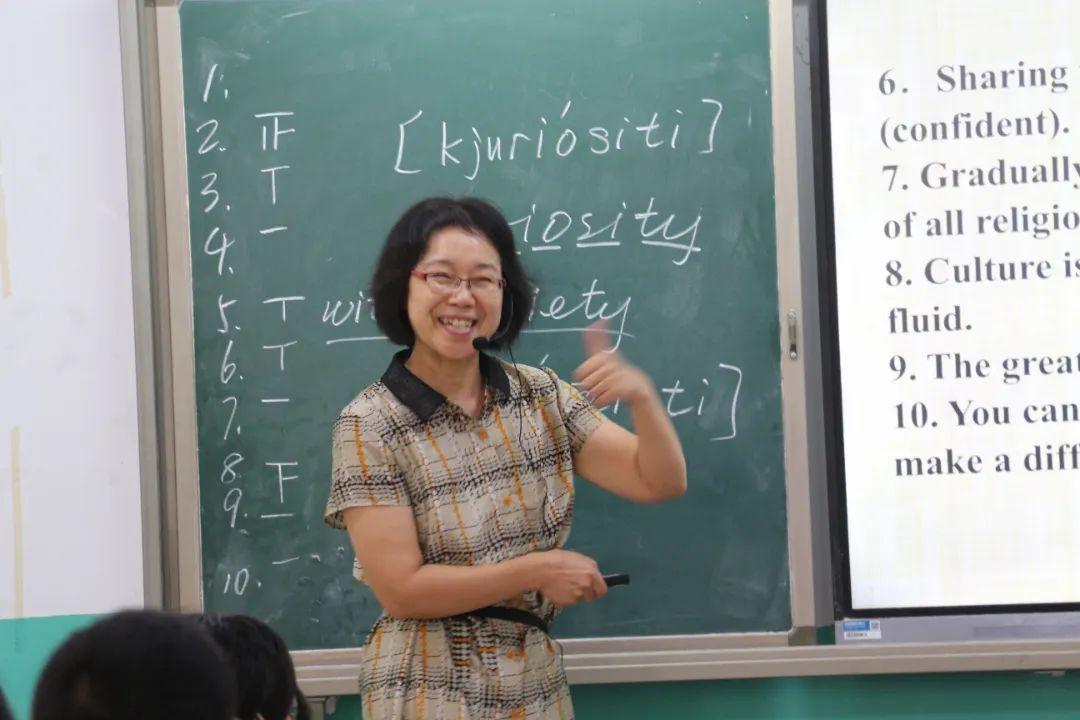 1.
2.
3. T
4. –
5. T
6. T
7. –
8. F
9. –
10. –
[kjuriósiti]
iosity
wi iety
ti]
6. Sharing
(confident).
7. Gradually
of all religio
8. Culture is
fluid.
9. The great
10. You can
make a diff